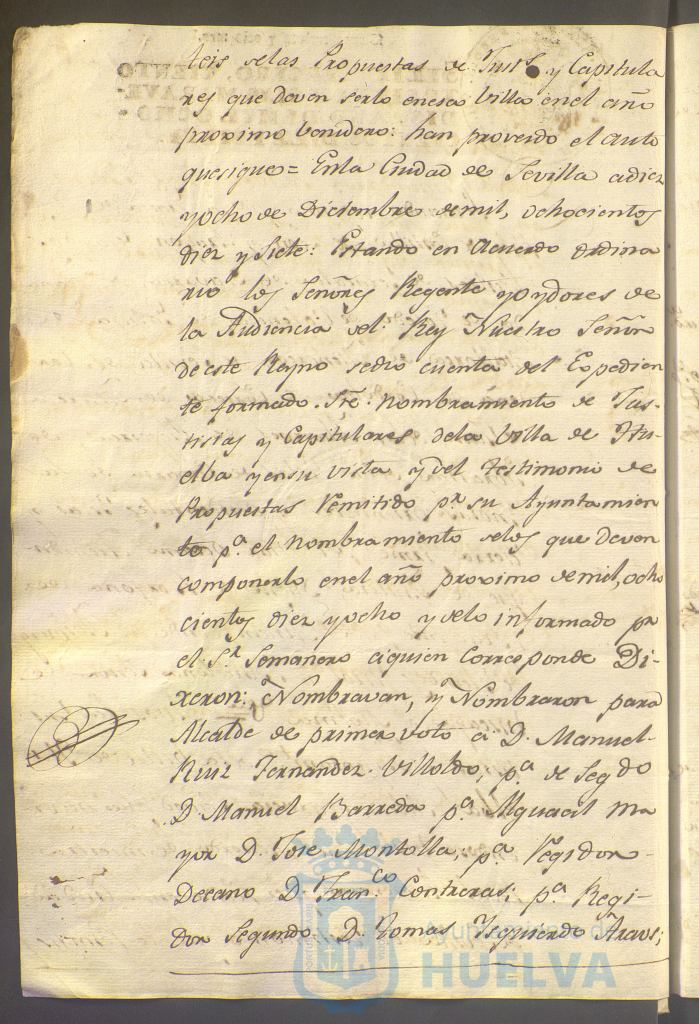 teis de las Propuestas de Just.s y Capitula
res que deven serlo en esa Villa en el año
proximo venidero: han proveido el auto
que sigue = En la Ciudad de Sevilla a diez
y ocho de Diciembre de mil, ochocientos
diez y siete: Estando en Acuerdo ordina
rio los Señores Regente y oydores de
la Audiencia del Rey Nuestro Señor
de este Reyno se dio cuenta del Expedien
te formado sre. nombramiento de Jus-
ticias y Capitulares de la Villa de Hu-
elba y en su vista y del testimonio de
Propuestas remitido pr. su Ayuntamien
to pa. el nombramiento de los que deven
componerlo en el año proximo de mil, ocho
cientos diez y ocho y de lo informado pr
el Sr. Semanero a quien corresponde Di-
xeron: Nombravan, y Nombraron para
Alcalde de primer voto a D. Manuel
Ruiz Fernandez Villoldo; pa. de Segdo
D. Manuel Barreda pa. Alguacil ma
yor D. Jose Montolla, pa. Regidor
Decano D. Franco. Contreras; pa. Regi-
dor Segundo D. Tomas Izquierdo Araus;
Ayuntamiento de
HUELVA